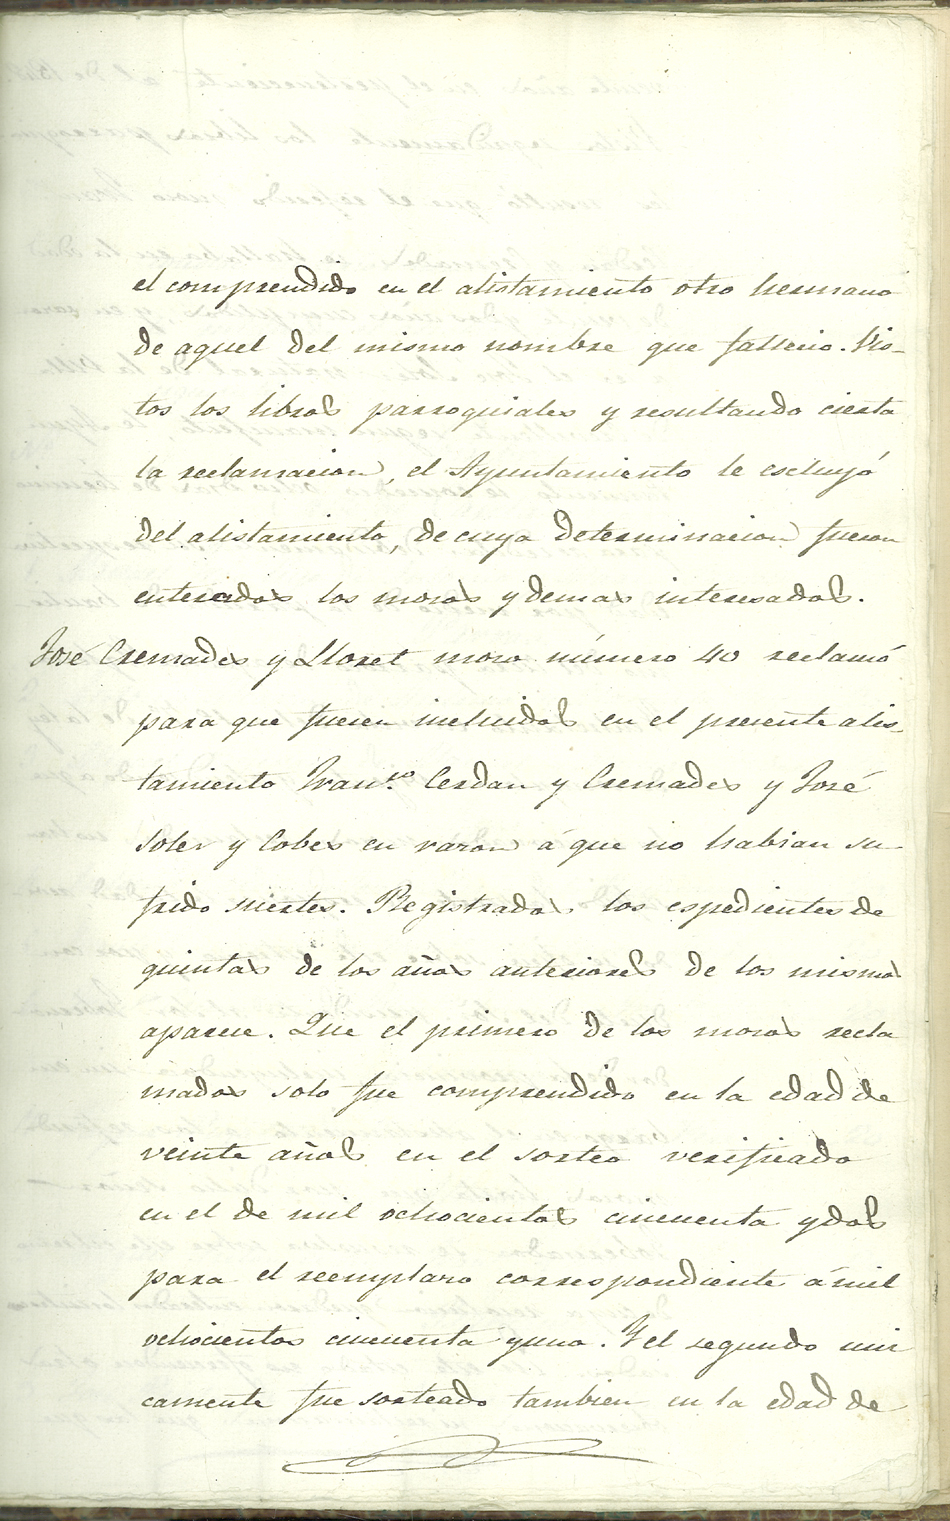 el comprendido en el alistamiento otro hermano
de aquel del mismo nombre que fallecio. Vis-
tos los libros parroquiales y resultando cierta
la reclamacion, el Ayuntamiento le escluyó
del alistamiento, de cuya determinacion fueron
enterados los mozos y demas interesados.
José Cremades y Lloret mozo número 40 reclamó
para que fuesen incluidos en el presente alis-
tamiento Fran.co Cerdan y Cremades y José
Soler y Cobes en razon á que no habian su-
frido suertes. Registrados los espedientes de
quintas de los años anteriores de los mismos
aparece. Que el primero de los mozos recla
mados solo fue comprendido en la edad de
veinte años en el sorteo verificado
en el de mil ochocientos cincuenta y dos
para el reemplazo correspondiente á mil
ochocientos cincuenta y uno. Y el segundo uni
camente fue sorteado tambien en la edad de